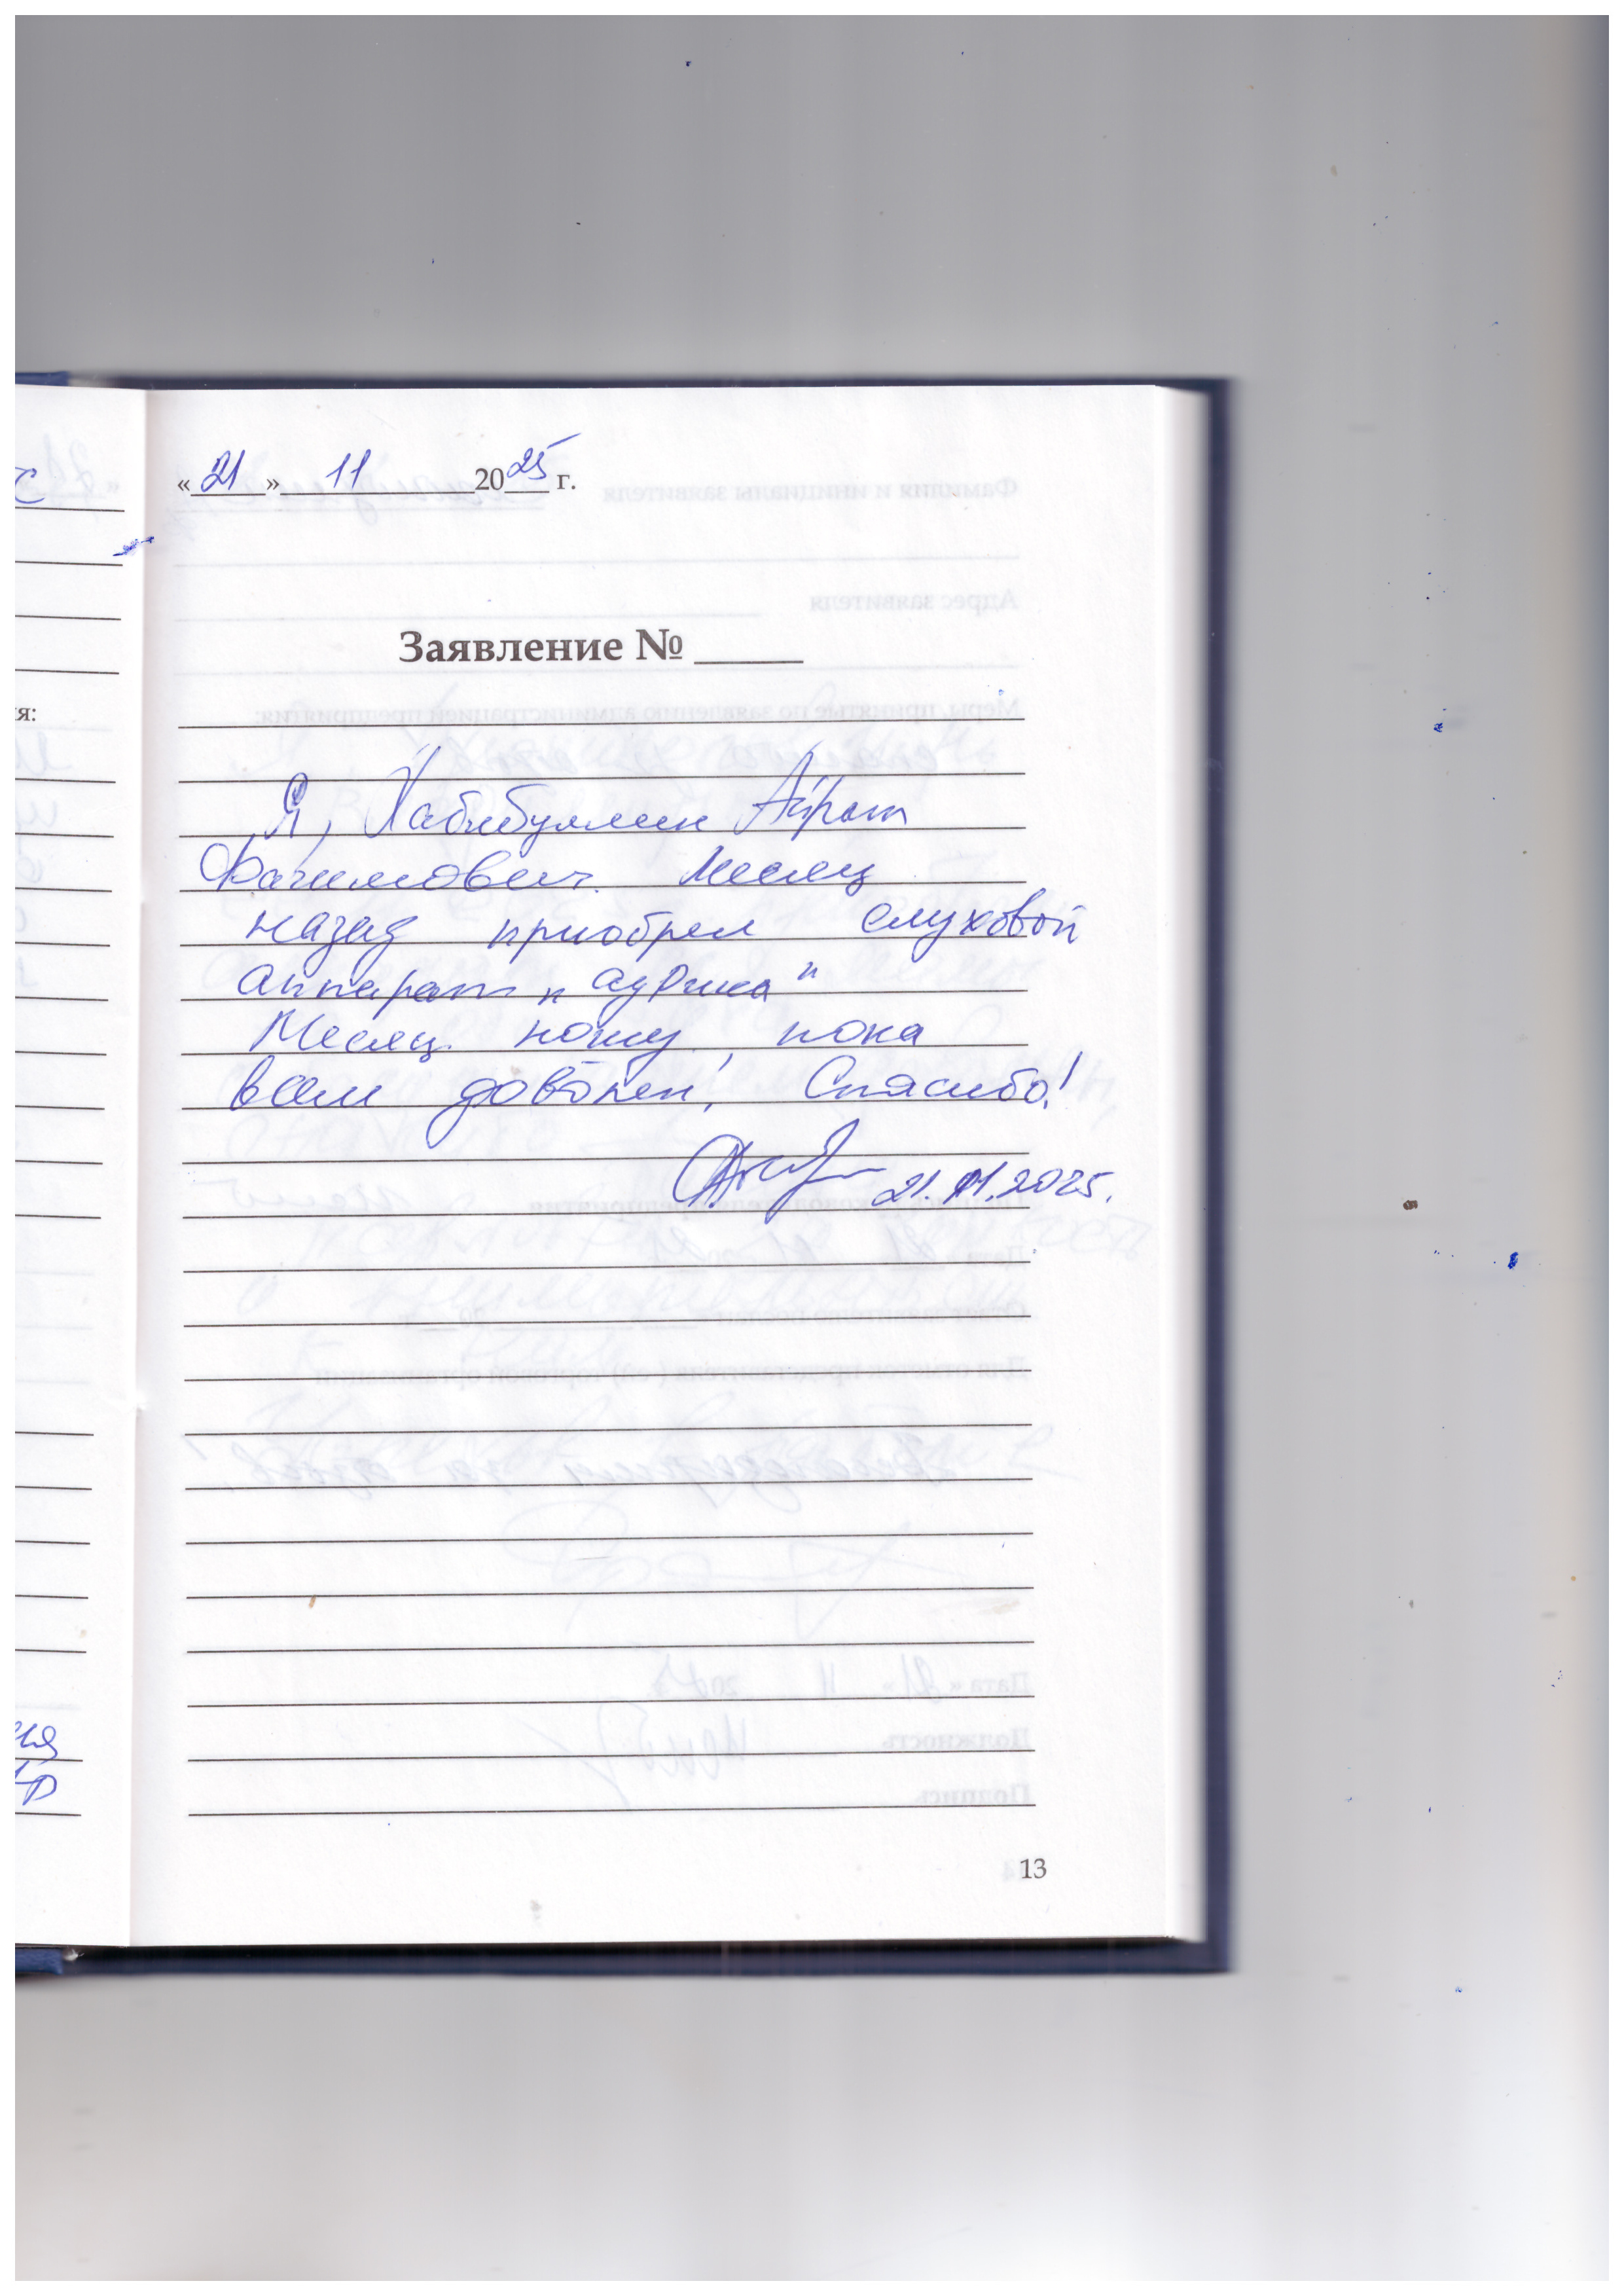 «21» 11 2025 г.
Заявление № _____
Я, Хабибуллин Айрат
Фагимович. Месяц
назад приобрел слуховой
аппарат „аурика"
Месяц ношу, пока
всем доволен! Спасибо!
21.11.2025.
я:
ия
13